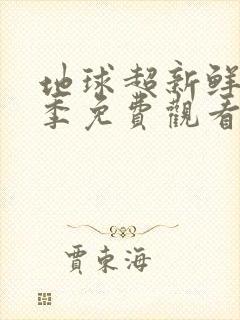 地球超新鲜
季免費觀看
賈東海